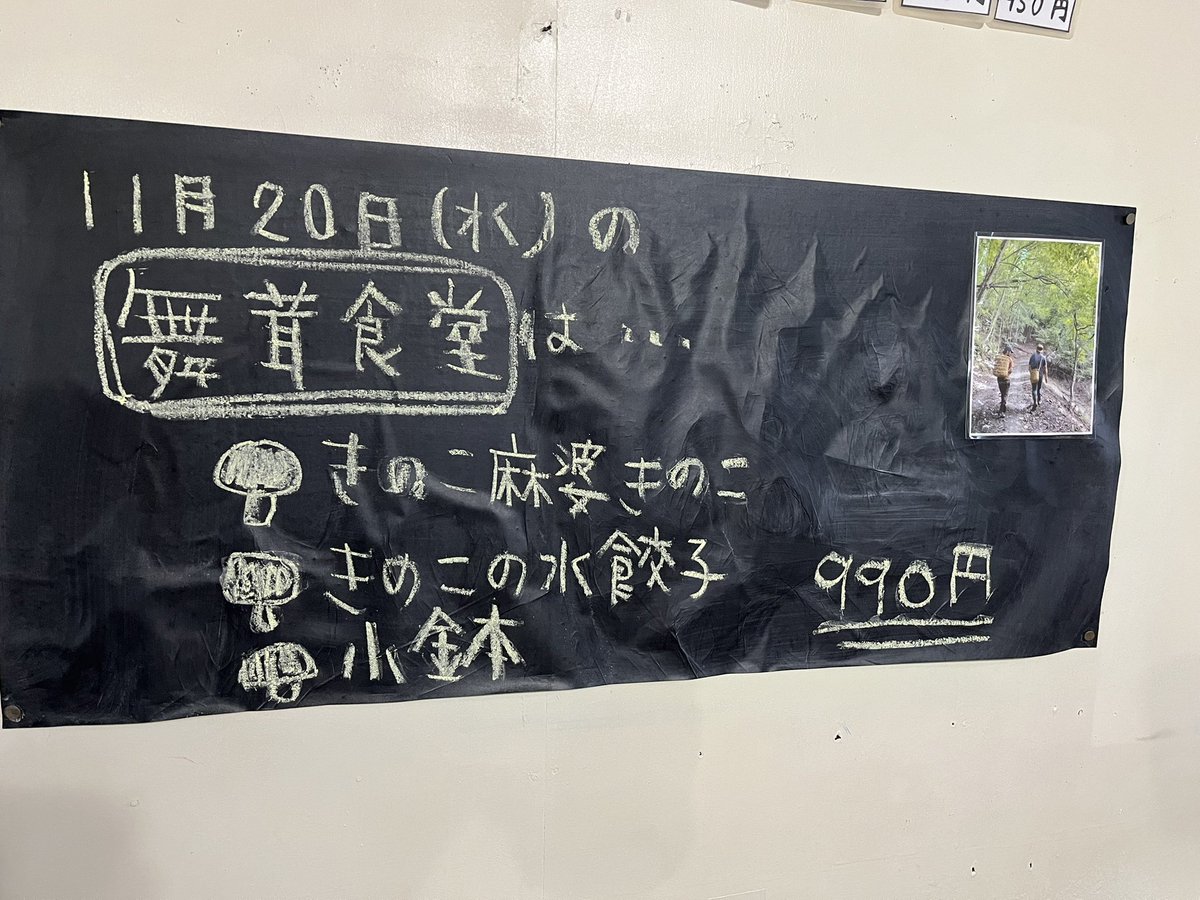 950円
11月20日(水)の
舞茸食堂は…
きのこ麻婆きのこ
きのこの水餃子
990円
小鉢